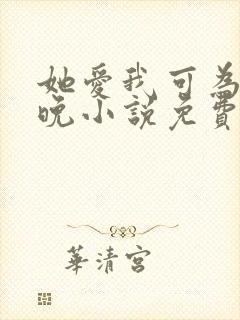 她愛我可為
晚小說免費
華清宮